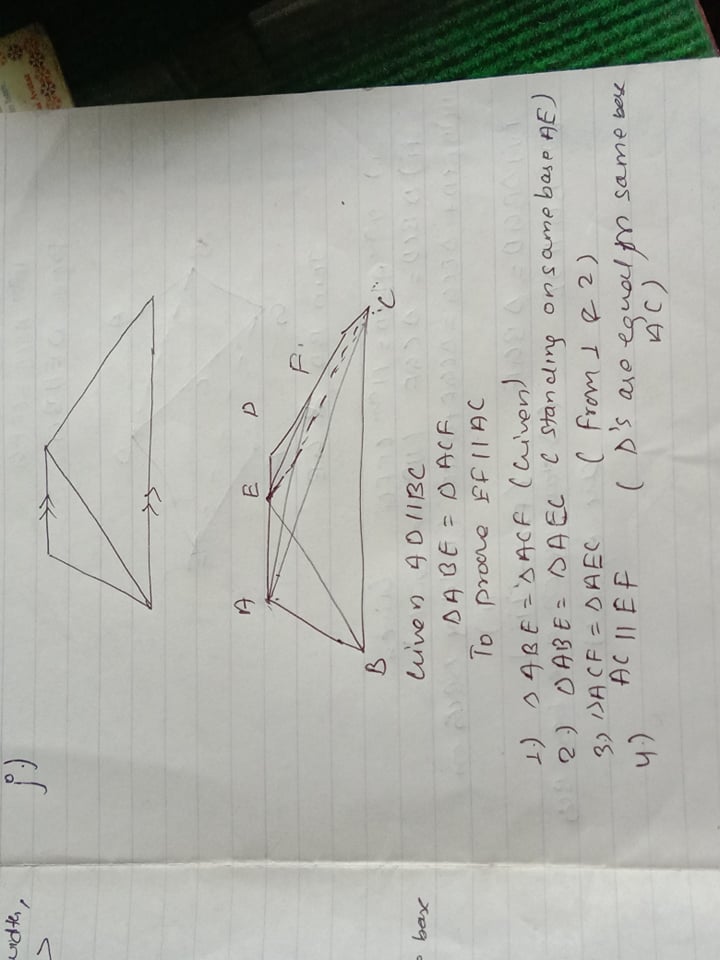 j.)
A E D
F
B C
Given AD || BC
△ABE = △ACF
To prove EF || AC
1.) △ABE = △ACF (Given)
2.) △ABE = △AEC ( standing on same base AE)
3.) △ACF = △AEC ( from 1 & 2)
4.) AC || EF ( D's are equal on same base
AC)
width,
base